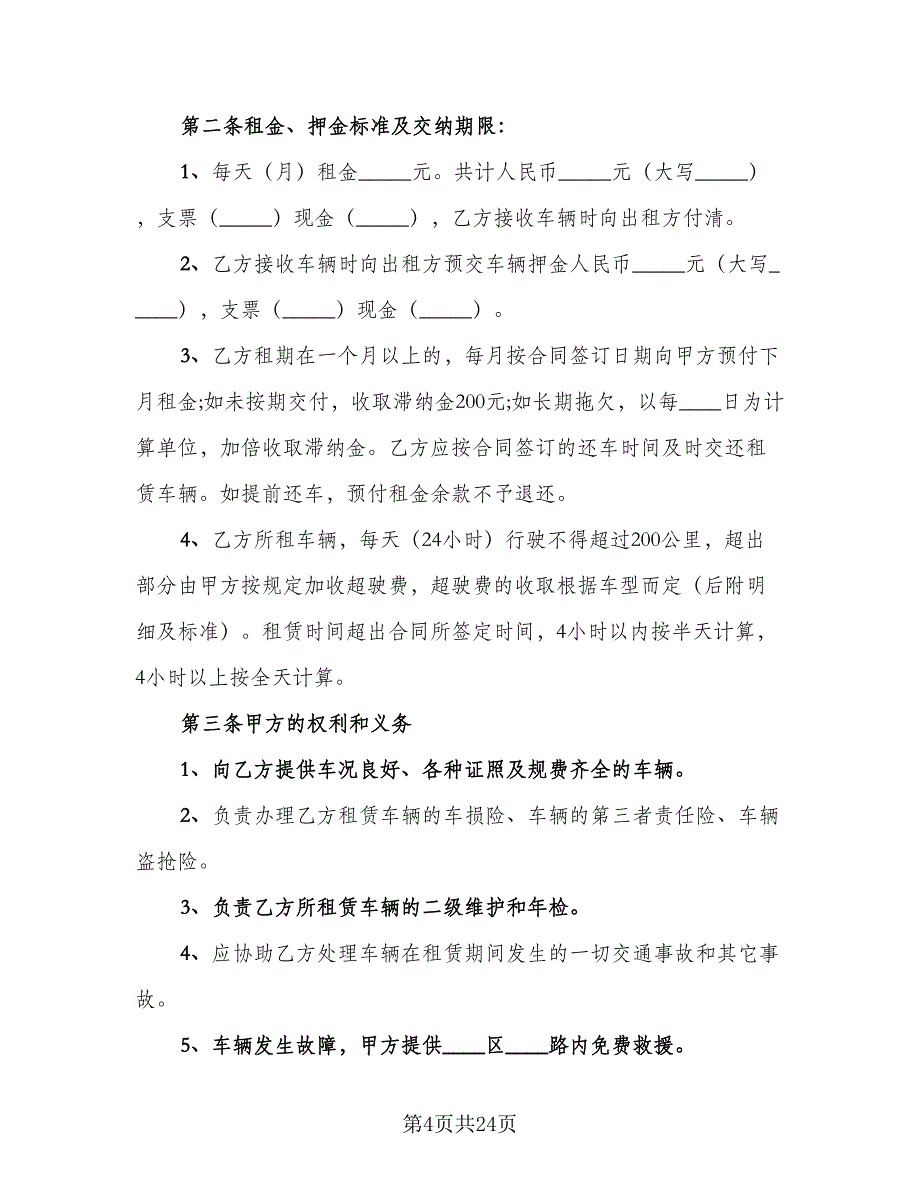 第二条租金、押金标准及交纳期限：
1、每天（月）租金_____元。共计人民币_____元（大写_____）
，支票（_____）现金（_____），乙方接收车辆时向出租方付清。
2、乙方接收车辆时向出租方预交车辆押金人民币_____元（大写_
____），支票（_____）现金（_____）。
3、乙方租期在一个月以上的，每月按合同签订日期向甲方预付下
月租金;如未按期交付，收取滞纳金200元;如长期拖欠，以每____日为计
算单位，加倍收取滞纳金。乙方应按合同签订的还车时间及时交还租
赁车辆。如提前还车，预付租金余款不予退还。
4、乙方所租车辆，每天（24小时）行驶不得超过200公里，超出
部分由甲方按规定加收超驶费，超驶费的收取根据车型而定（后附明
细及标准）。租赁时间超出合同所签定时间，4小时以内按半天计算，
4小时以上按全天计算。
第三条甲方的权利和义务
1、向乙方提供车况良好、各种证照及规费齐全的车辆。
2、负责办理乙方租赁车辆的车损险、车辆的第三者责任险、车辆
盗抢险。
3、负责乙方所租赁车辆的二级维护和年检。
4、应协助乙方处理车辆在租赁期间发生的一切交通事故和其它事
故。
5、车辆发生故障，甲方提供____区____路内免费救援。
第4页共24页